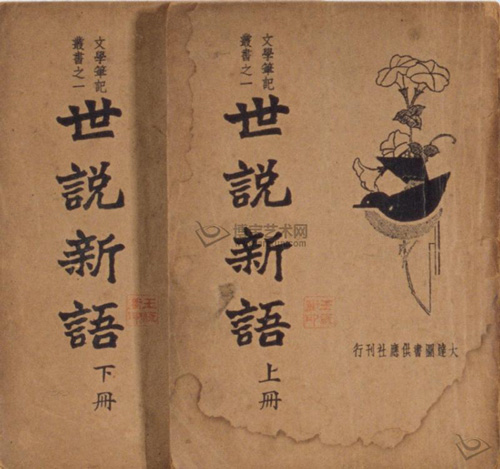 大達圖書供應社刊行
文學筆記
叢書之一
世説新語
上册
文學筆記
叢書之一
世説新語
下册
博宝艺术网